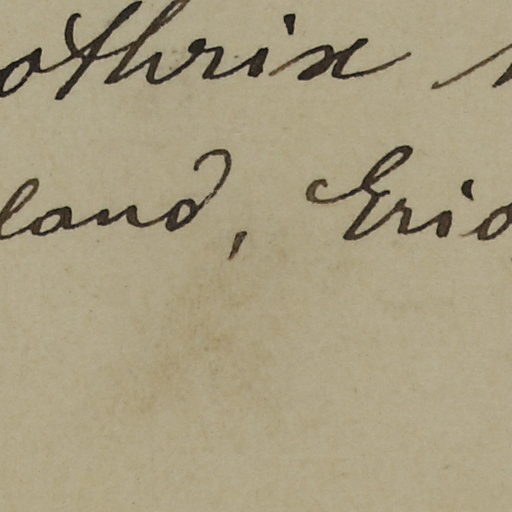 othrix
land, Erio